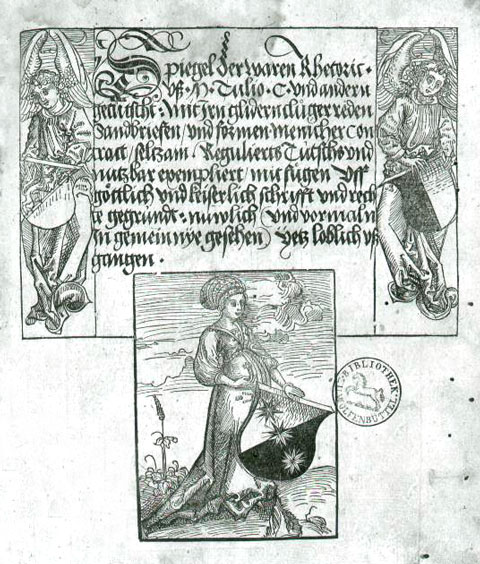 Spiegel der waren Rhetoric·
vß· M· Tulio· C· vnd andern
getütscht· Mit Irn glidern clůger reden
Sandbriefen/ vnd formen menicher con
tract/ seltzam· Regulierts Tütschs vnd
nutzbar exempliert/ mit fůgen vff
göttlich vnd keiserlich schrifft vnd rech
te gegründt· nuwlich (vnd vormaln
In gemein nye gesehen) yetz loblich vß
gangen·
BIBLIOTHEK
WOLFENBÜTTEL